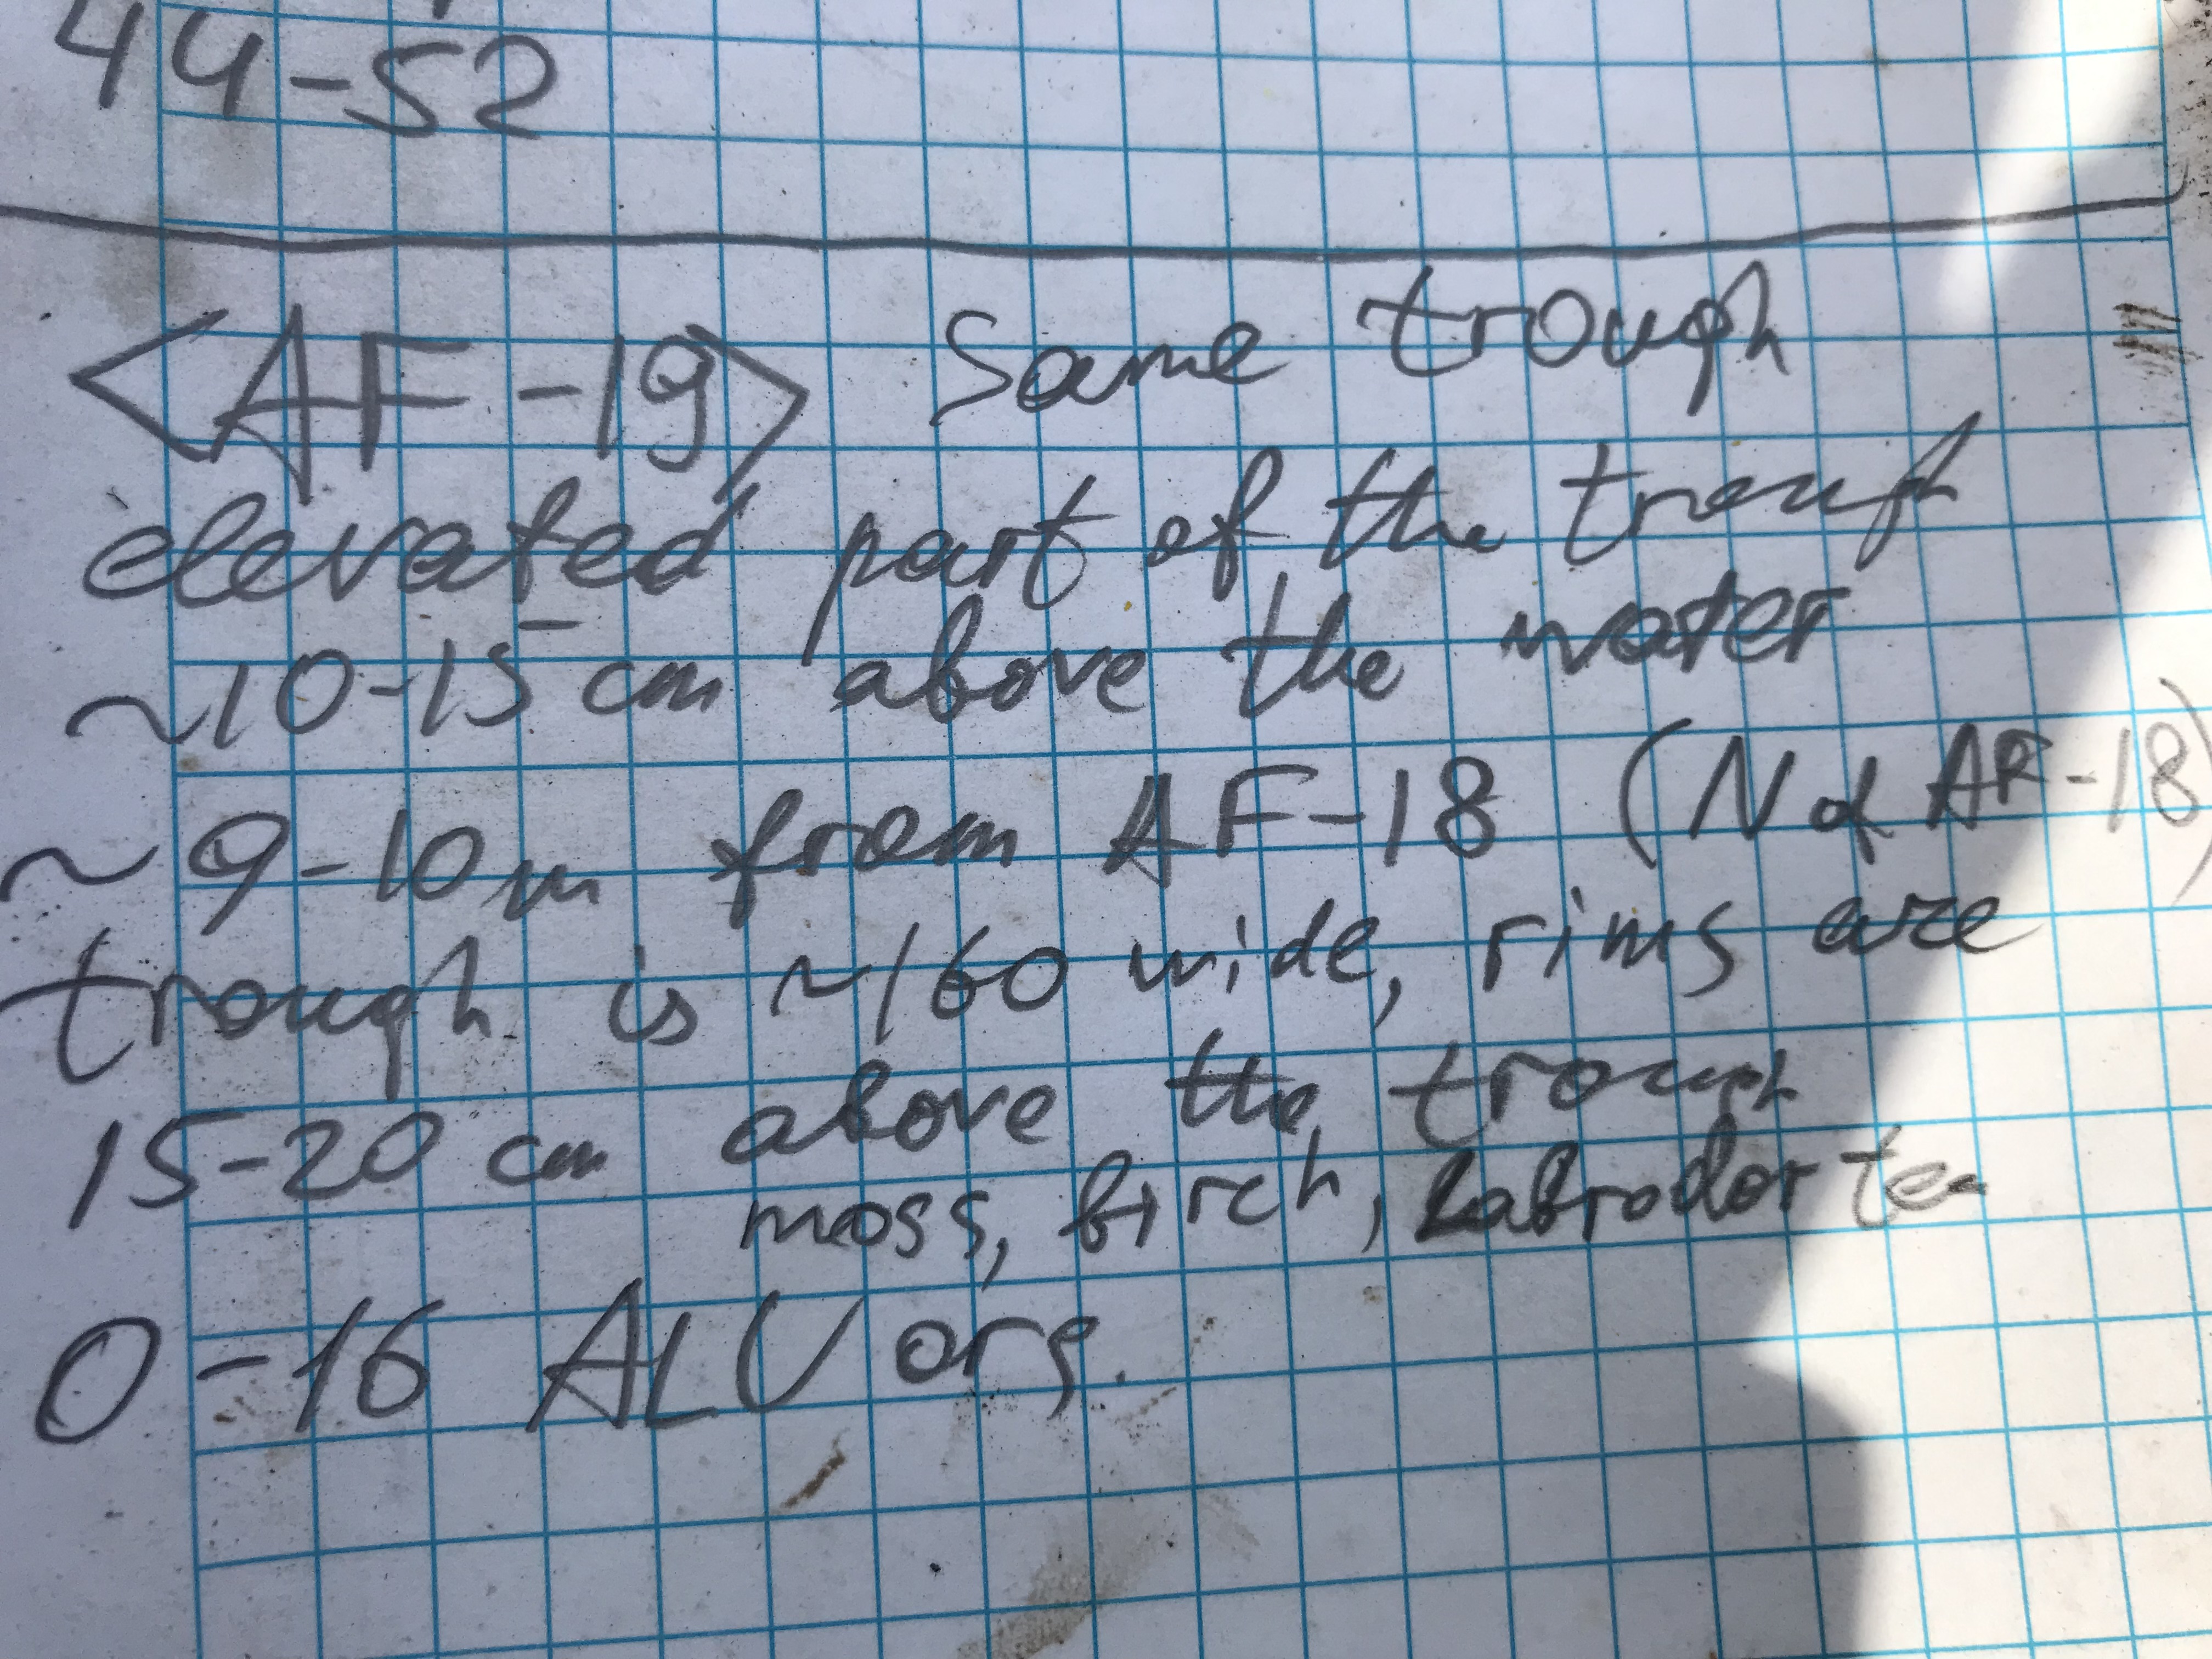 44-52
<AF-19> Same trough
elevated part of the trough
~10-15 cm above the water
~9-10m from AF-18 (N of AF-18)
trough is ~160 wide, rims are
15-20 cm above the trough
moss, birch, Labrador tea
0-16 ALU org.